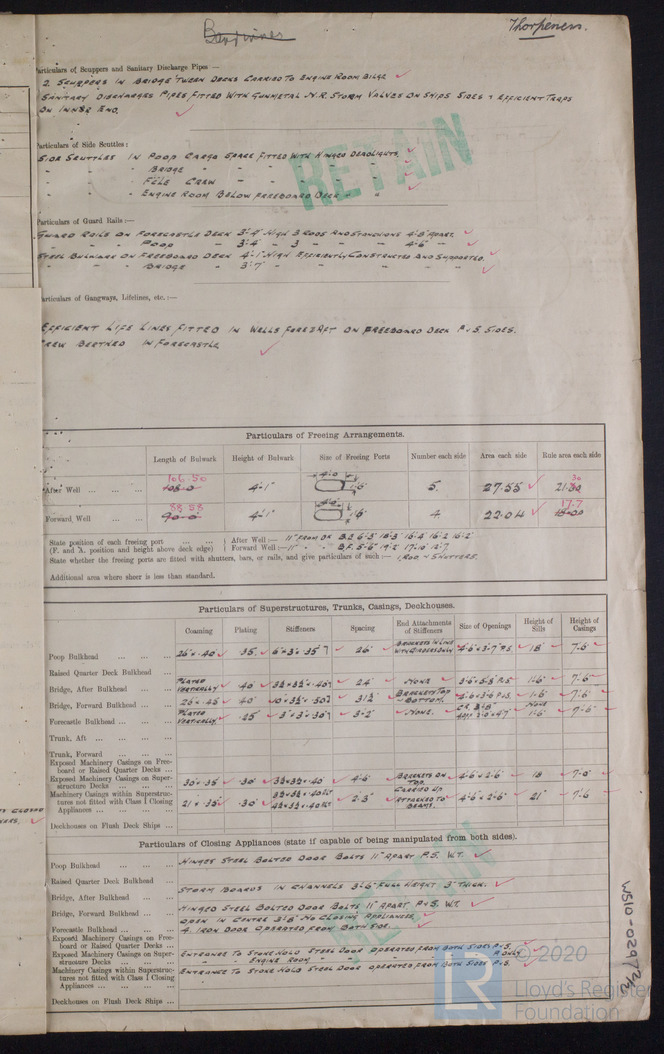 Thorpeness.
Particulars of Scuppers and Sanitary Discharge Pipes —
2. SCUPPERS IN BRIDGE 'TWEEN DECKS CARRIED TO ENGINE ROOM BILGE
SANITARY DISCHARGES PIPES FITTED WITH GUNMETAL N.R. STORM VALVES ON SHIPS SIDES & EFFICIENT TRAPS
ON INNER END.
Particulars of Side Scuttles :
SIDE SCUTTLES IN POOP CARGO SPACE FITTED WITH HINGED DEADLIGHTS.
" " " BRIDGE " " " "
" " " F'CLE CREW " " " "
" " " ENGINE ROOM BELOW FREEBOARD DECK " "
RETAIN
Particulars of Guard Rails :—
GUARD RAILS ON FORECASTLE DECK 3'-9" HIGH 3 RODS AND STANCHIONS 4'-8" APART.
" " " POOP " 3'-4" " 3 " " " 4'-6" "
STEEL BULWARK ON FREEBOARD DECK 4'-1" HIGH EFFICIENTLY CONSTRUCTED AND SUPPORTED.
" " " BRIDGE " 3'7" " " " " "
Particulars of Gangways, Lifelines, etc. :—
EFFICIENT LIFE LINES FITTED IN WELLS FORE & AFT ON FREEBOARD DECK P & S. SIDES.
CREW BERTHED IN FORECASTLE
Particulars of Freeing Arrangements.
Length of Bulwark Height of Bulwark Size of Freeing Ports Number each side Area each side Rule area each side
After Well ... ... ... 106.50 4'-1" 4'-0" 1'-6" 5. 27.55
Forward Well ... ... 88.58 90-0 4'-1" 1'6" 4 22.04 17.7
State position of each freeing port ... ... ... After Well :— 11" FROM DK
(F. and A. position and height above deck edge) Forward Well :— 11" " "
State whether the freeing ports are fitted with shutters, bars, or rails, and give particulars of such :— 1 ROD & SHUTTERS.
Additional area where sheer is less than standard.
Particulars of Superstructures, Trunks, Casings, Deckhouses.
Coaming Plating Stiffeners Spacing End Attachments of Stiffeners Size of Openings Height of Sills Height of Casings
Poop Bulkhead ... ... ... 26" x .40" .35" 6" x 3" x .35" 26" BRACKETS IN LINE WITH GIRDERS ONLY 4'-6" x 3'-7" P.S. 18" 7'-6"
Raised Quarter Deck Bulkhead ...
Bridge, After Bulkhead ... ... PLATED VERTICALLY .40" 3½ x 3½ x .40" 24" NONE 1'-6" 7'-6"
Bridge, Forward Bulkhead ... ... 26" x .45" .40" 10" x 3½ x .50½ 31½" BRACKETS TOP & BOTTOM. 1'-6" 7'-6"
Forecastle Bulkhead ... ... PLATED VERTICALLY. .25" 3" x 3" x .30" 3'-2" NONE. NONE 1'-6" 7'-6"
Trunk, Aft ... ... ...
Trunk, Forward ... ... ...
Exposed Machinery Casings on Freeboard or Raised Quarter Decks ...
Exposed Machinery Casings on Superstructure Decks ... ... ... 30" x .35" .30" 3½ x 3½ x .40" 4'-6" BRACKETS ON TOP. 2'-6" x 2'-6" 18 7'-0"
Machinery Casings within Superstructures not fitted with Class I Closing Appliances ... ... ... 21" x .35" .30" 2'-3" CARRIED UP & ATTACHED TO BEAMS. 4'-6" x 2'-6" 21" 7'-6
Deckhouses on Flush Deck Ships ...
Particulars of Closing Appliances (state if capable of being manipulated from both sides).
Poop Bulkhead ... ... ... HINGED STEEL BOLTED DOOR BOLTS 11" APART P.S. W.T.
Raised Quarter Deck Bulkhead ...
Bridge, After Bulkhead ... ... STORM BOARDS IN CHANNELS 3'-6" FULL HEIGHT 3" THICK.
Bridge, Forward Bulkhead ... HINGED STEEL BOLTED DOOR BOLTS 11" APART P & S. W.T.
OPEN IN CENTRE 3'-8" NO CLOSING APPLIANCES.
Forecastle Bulkhead ... ... 4. IRON DOOR OPERATED FROM BOTH SIDE.
Exposed Machinery Casings on Freeboard or Raised Quarter Decks ...
Exposed Machinery Casings on Superstructure Decks ... ... ENTRANCE TO STOKEHOLD STEEL DOOR OPERATED FROM BOTH SIDES P & S.
" ENGINE ROOM " " " " " P ONLY
Machinery Casings within Superstructures not fitted with Class I Closing Appliances ... ENTRANCE TO STOKEHOLD STEEL DOOR OPERATED FROM BOTH SIDES P & S.
Deckhouses on Flush Deck Ships ...
RETAIN
WS10-0297 2/2
© 2020
LR
Lloyd's Register
Foundation